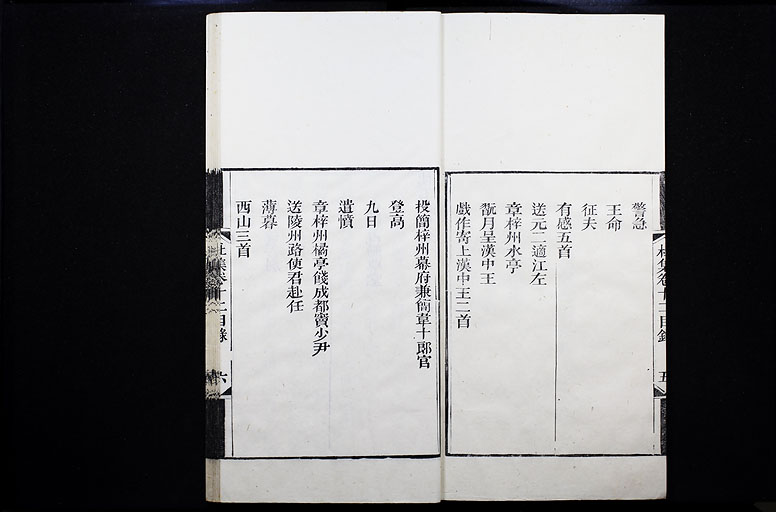 警急
王命
征夫
有感五首
送元二適江左
章梓州水亭
翫月呈漢中王
戲作寄上漢中王二首
杜集卷十二目錄
五
投簡梓州幕府兼簡韋十郎官
登高
九日
遣憤
章梓州橘亭餞成都竇少尹
送陵州路使君赴任
薄暮
西山三首
杜集卷十二目錄
六